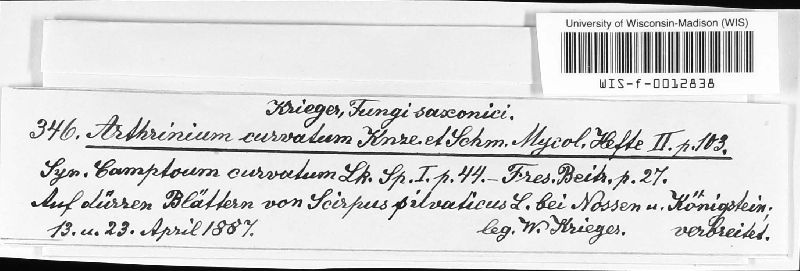 University of Wisconsin-Madison (WIS)
WIS-f-0012838
Krieger, Fungi saxonici.
346. Arthrinium curvatum Knze. et Schm. Mycol. Hefte II. p. 103.
Syn. Camptoum curvatum Lk. Sp. I. p. 44. – Fres. Beitr. p. 27.
Auf dürren Blättern von Scirpus silvaticus L. bei Nossen u. Königstein;
13. u. 23. April 1887. leg. W. Krieger. verbreitet.